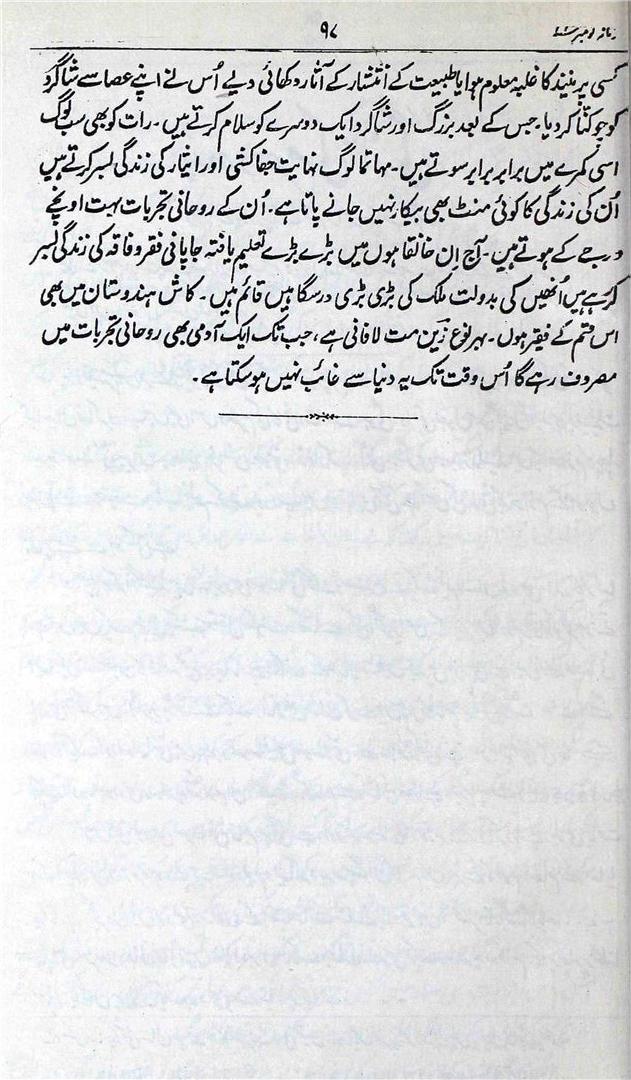 زمانہ نومبر
۹۷
کسی پر نیند کا غلبہ معلوم ہوا یا طبیعت کے انتشار کے آثار دکھائی دیے اُس نے اپنے عصا سے شاگرد
کو چوکنّا کر دیا۔ جس کے بعد بزرگ اور شاگرد ایک دوسرے کو سلام کرتے ہیں۔ رات کو بھی سب لوگ
اسی کمرے میں برابر برابر سوتے ہیں۔ مہاتما لوگ نہایت جفاکشی اور ایثار کی زندگی بسر کرتے ہیں
اُن کی زندگی کا کوئی منٹ بھی بیکار نہیں جانے پاتا ہے۔ اُن کے روحانی تجربات بہت اونچے
درجے کے ہوتے ہیں۔ آج اِن خانقاہوں میں بڑے بڑے تعلیم یافتہ جاپانی فقر و فاقہ کی زندگی بسر
کر رہے ہیں اُنھیں کی بدولت ملک کی بڑی بڑی درسگاہیں قائم ہیں۔ کاش ہندوستان میں بھی
اس قسم کے فقیر ہوں۔ بہر نوع زین مت لافانی ہے، جب تک ایک آدمی بھی روحانی تجربات میں
مصروف رہے گا اُس وقت تک یہ دنیا سے غائب نہیں ہو سکتا ہے۔